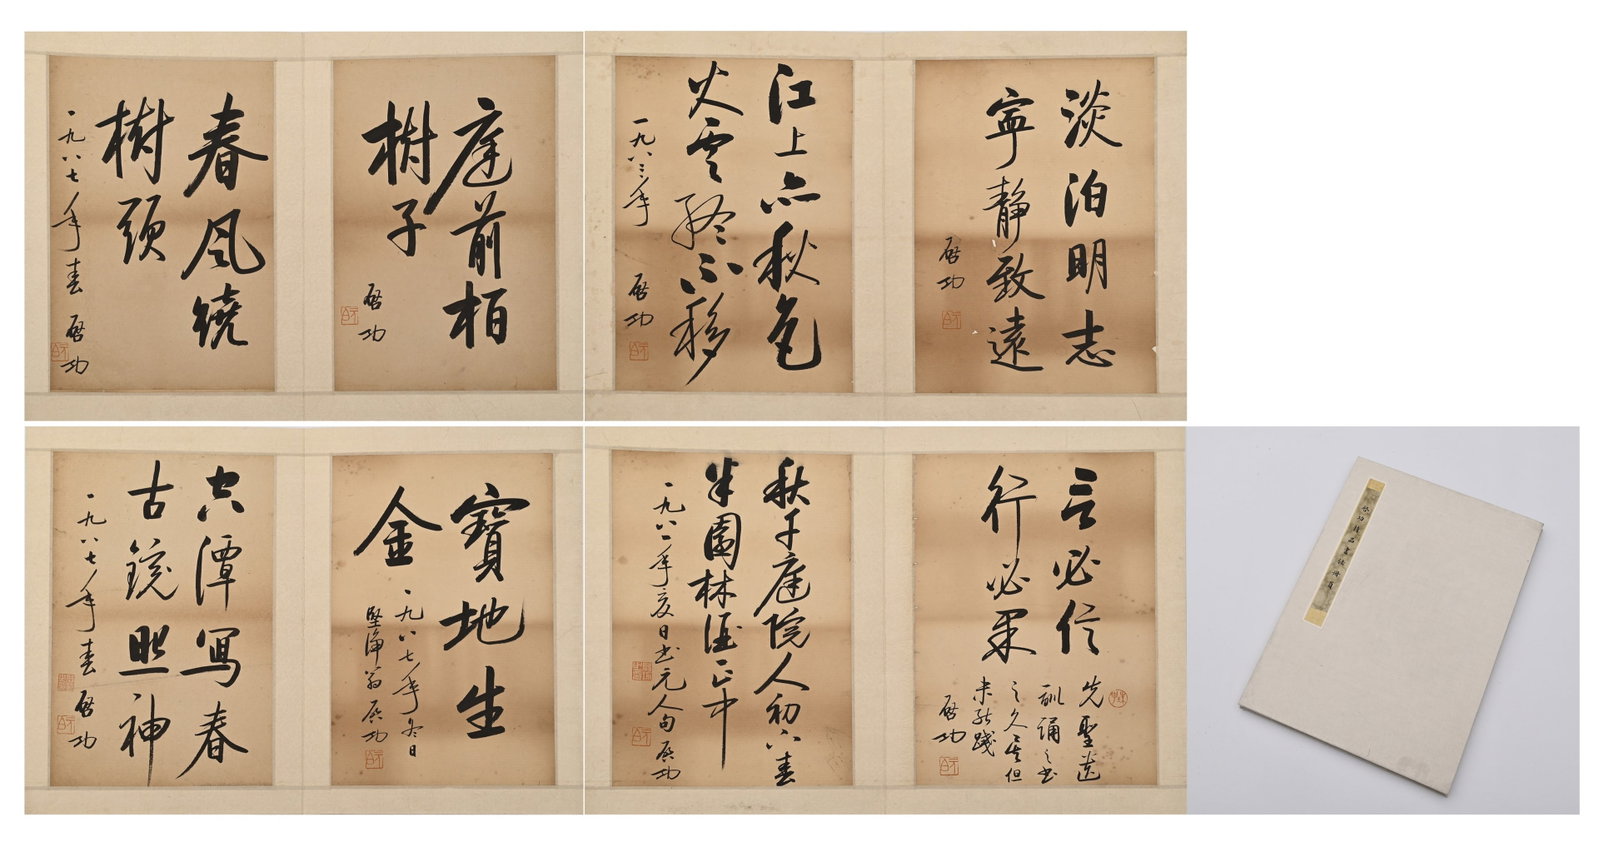 淡泊明志
寧静致遠
启功
江上亦秋色
火雲終不移
一九八三年 启功
庭前柏
樹子
启功
春風繞
樹頭
一九八七年春 启功
言必信
行必果
先聖遺
訓誦之书
之久矣但
未能踐
启功
秋千庭院人初下春
半園林酒正中
一九八一年夏日书元人句 启功
寶地生
金
一九八七年冬日
堅淨翁启功
空潭寫春
古鏡照神
一九八七年春 启功